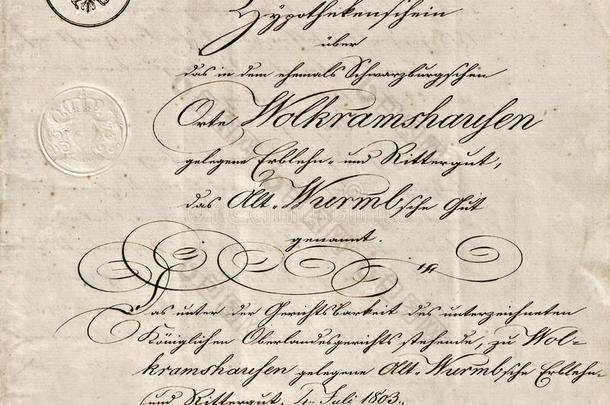 Hypothekenschein
über
das in dem ehemals Schwarzburgschen
Orte Wolkramshausen
gelegene Erblehn- und Rittergut,
das Alt-Wurmb'sche Gut
genannt.
Das unter der Gerichtsbarkeit des unterzeichneten
Königlichen Oberlandesgerichts stehende, zu Wol-
kramshausen gelegene Alt-Wurmb'sche Erblehn-
und Rittergut, 4. Juli 1803.,